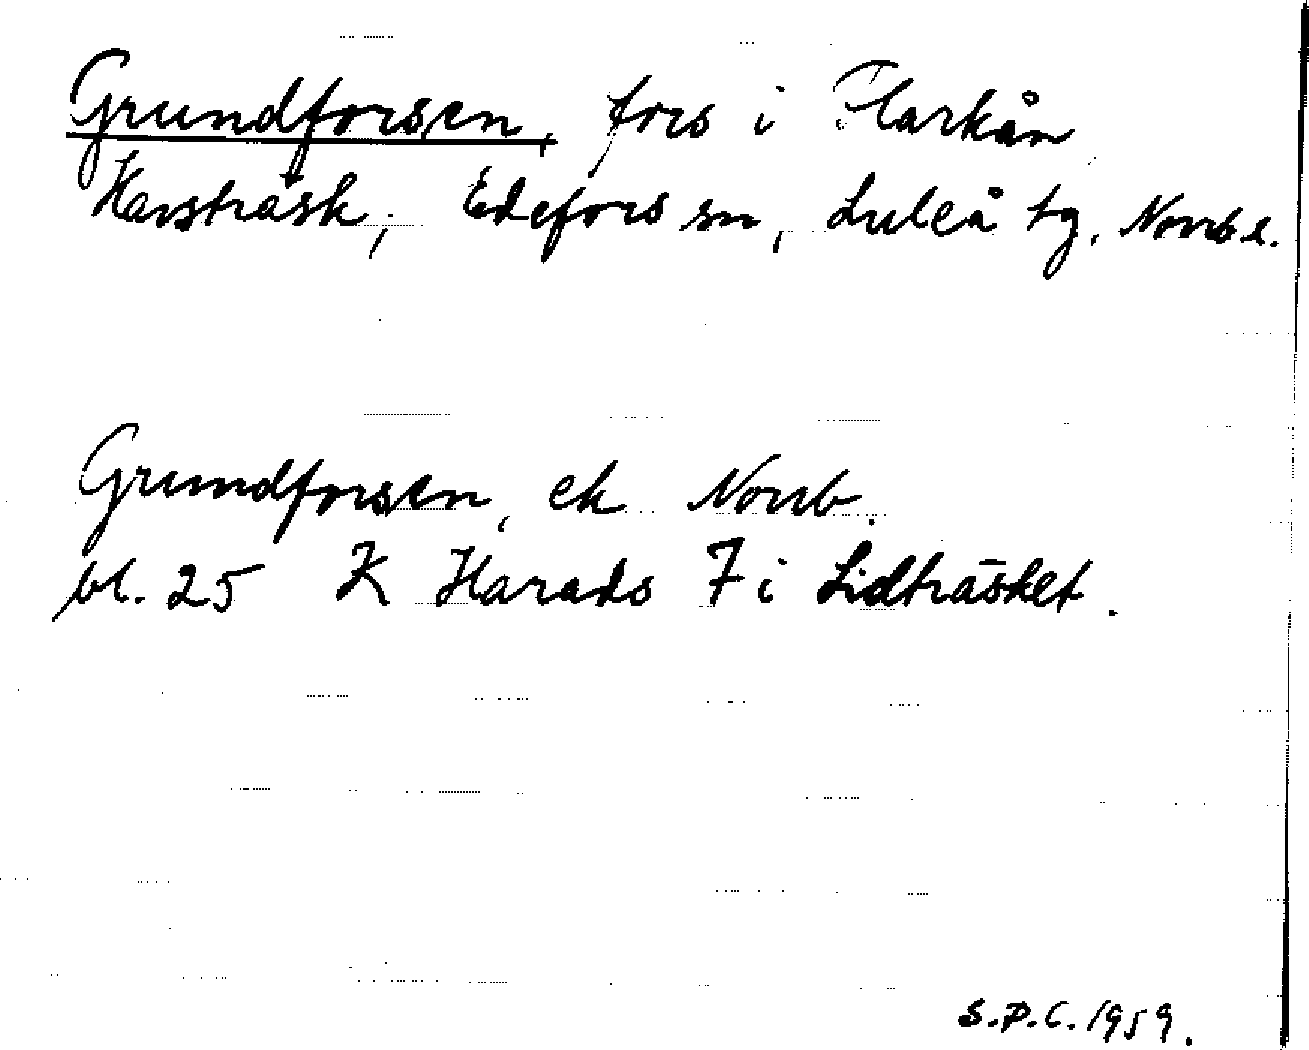 Grundforsen, fors i Flarkån
Harsträsk, Edefors sn, Luleå tg, Norrb l.
Grundforsen, ek Norrb.
bl. 25 K Harads 7 i Lidträsket.
S.P.C. 1959.